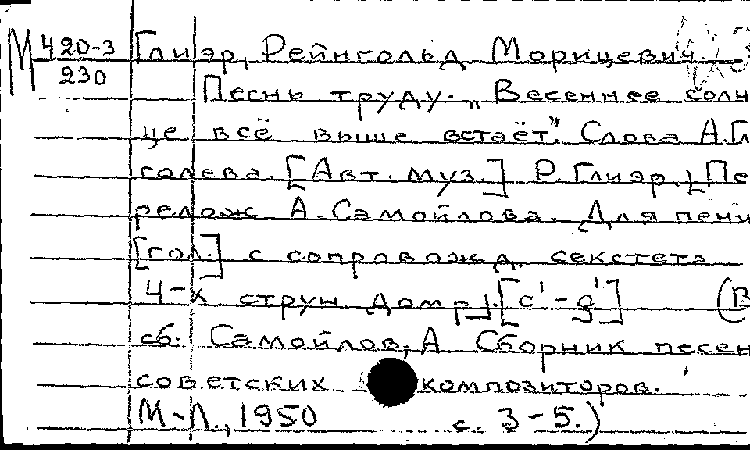 М 420-3/230 Глиэр, Рейнгольд Морицевич
Песнь труду. „Весеннее солн
це всё выше встаёт." Слова А.Гл
[Авт. муз.] Р. Глиэр. [Пе
релож. А. Самойлова. Для пени
[гол.] с сопровожд. секстета
4-х струн. домр]. [c¹-g¹] (В
сб. Самойлов, А Сборник песен
советских композиторов.
М-Л., 1950 с. 3-5.)